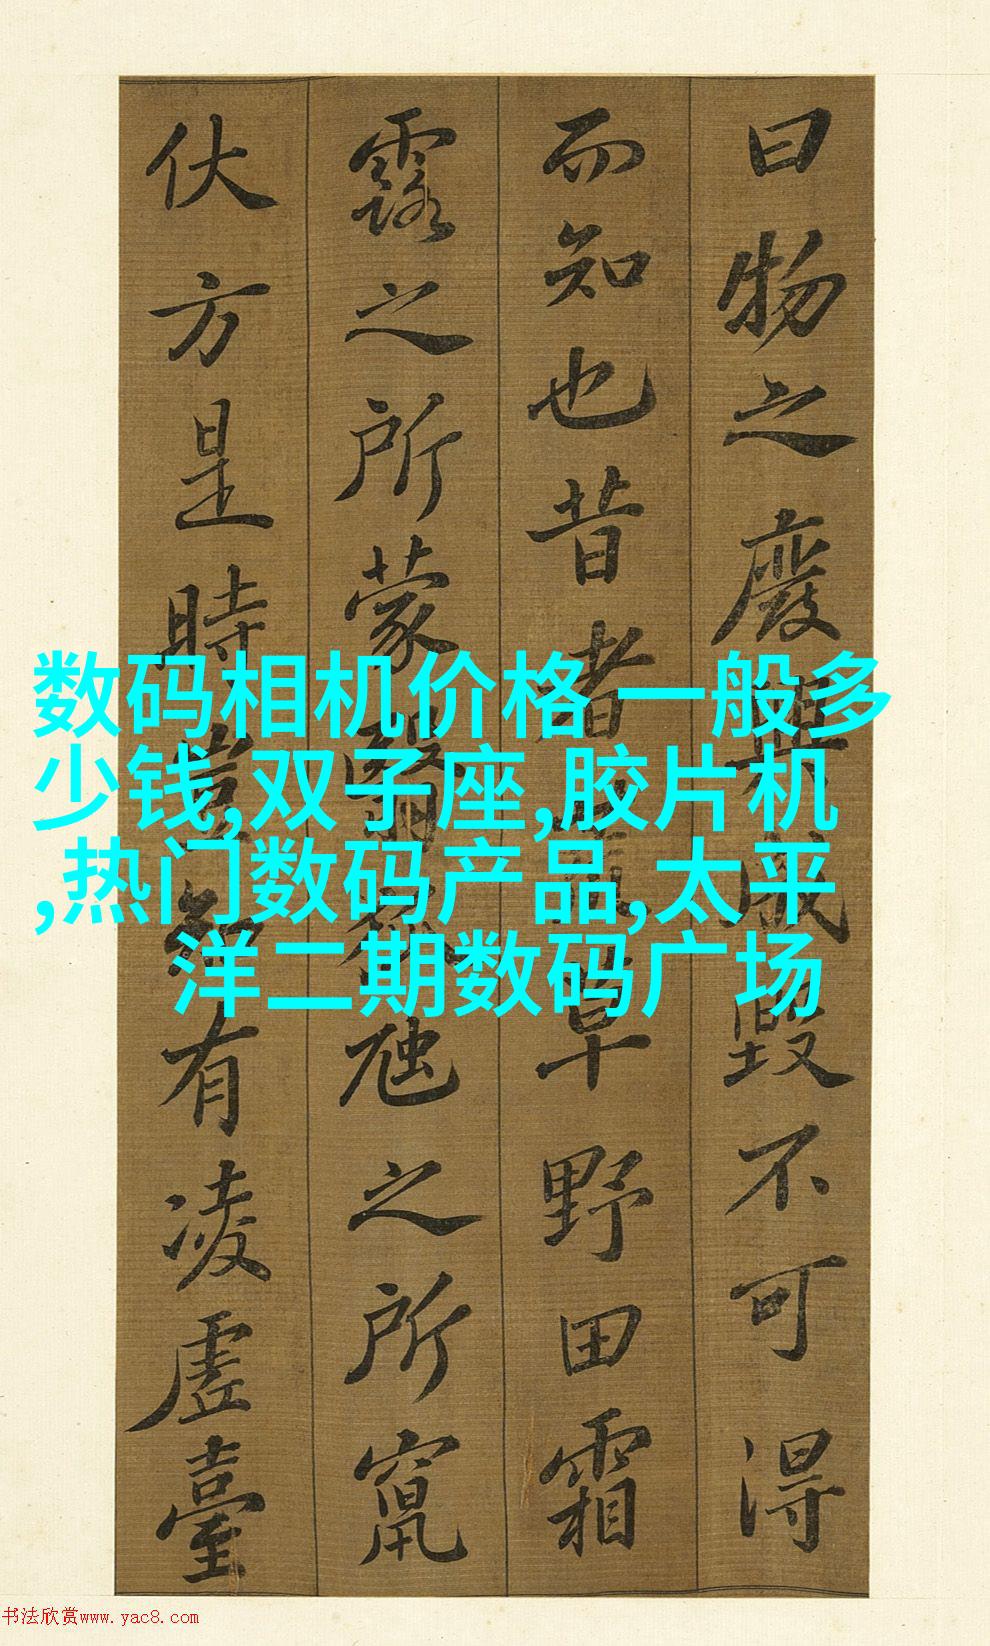 曰物之廢興成毀不可得
而知也昔者荒草野田霜
露之所蒙翳狐虺之所竄
伏方是時豈知有凌虛臺
数码相机价格一般多
少钱,双子座,胶片机
,热门数码产品,太平
洋二期数码广场
书法欣赏www.yac8.com